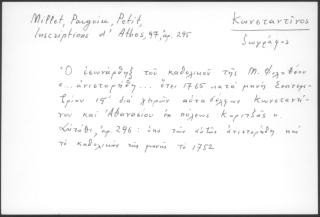 Millet, Pargoire, Petit,
Inscriptions d'Athos, 97, ἀρ. 295
Κωνσταντῖνος
ζωγράφος
Ὁ ἐσωνάρθηξ τοῦ καθολικοῦ τῆς Μ. Φιλοθέου
«... ἀνιστορήθη... ἔτει 1765 κατὰ μῆνα
διὰ χειρῶν αὐταδέλφων Κωνσταντί-
νου καὶ Ἀθανασίου ἐκ πόλεως Κοριτζᾶς».
ἀρ. 296: ὑπὸ τῶν αὐτῶν ἀνιστορήθη καὶ
τὸ καθολικὸν τῆς μονῆς τὸ 1752